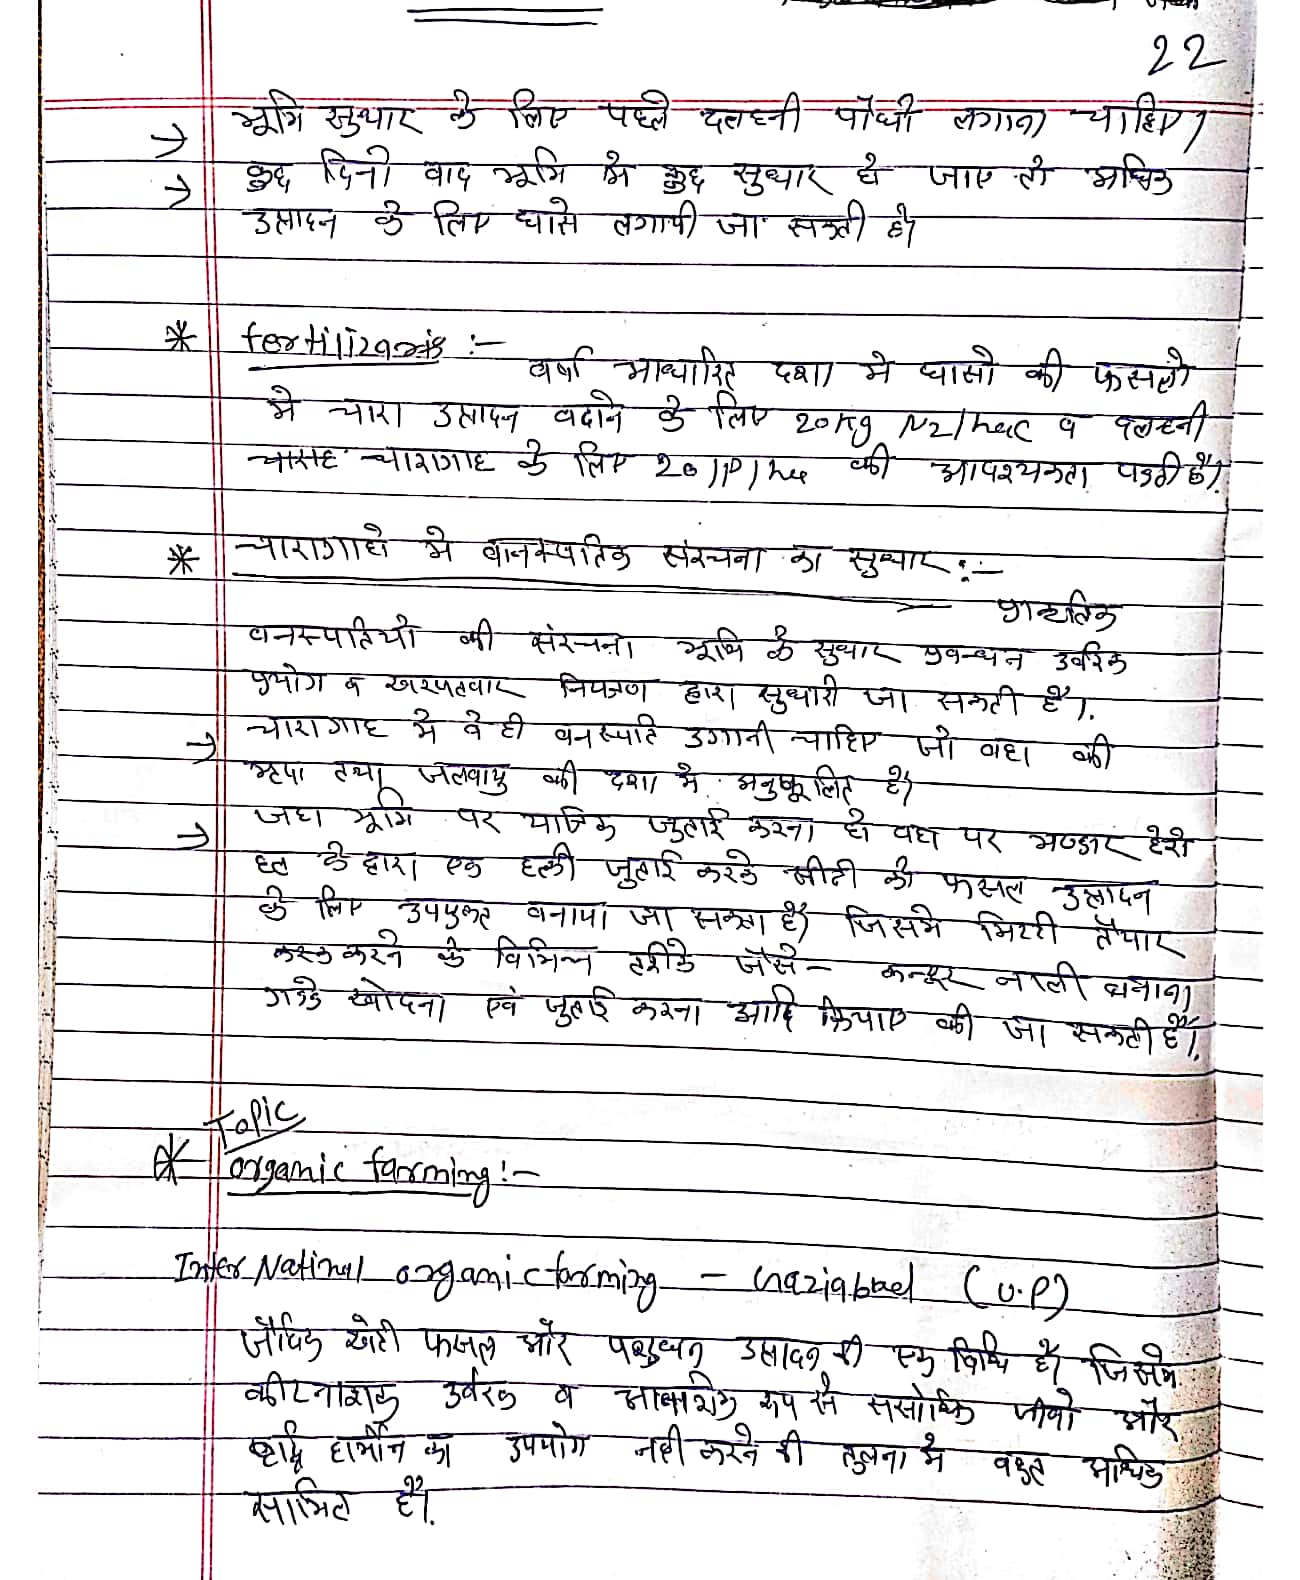 22
भूमि सुधार के लिए पहले दलहनी पौधी लगाना चाहिए।
→ कुछ दिनो बाद भूमि मे कुछ सुधार हो जाए तो अधिक
→ उत्पादन के लिए घासे लगायी जा सकती है।
* fertilizaris :-
वर्षा आधारित दशा मे घासो की फसलो
मे चारा उत्पादन बढाने के लिए 20kg N2/hac व दलहनी
चारागाह के लिए 20 /P/ha की आवश्यकता पडती है।
* चारागाहो मे वानस्पतिक संरचना का सुधार :-
प्राकृतिक
वनस्पतियो की संरचना भूमि के सुधार प्रबन्धन उर्वरक
प्रयोग व खरपतवार नियत्रण द्वारा सुधारी जा सकती है।
→ चारागाह मे वे ही वनस्पति उगानी चाहिए जो वहा की
मृदा तथा जलवायु की दशा मे अनुकूलित है।
→ जहा भूमि पर यात्रिक जुताई करना हो वहा पर भण्डार देशी
हल के द्वारा एक हल्की जुताई करके मीटी को फसल उत्पादन
के लिए उपयुक्त बनाया जा सकता है। जिसमे मिटटी तैयार
करने के विभिन्न तरीके जैसे - कन्टूर नाली बनाना
गडडे खोदना एवं जुताई करना आदि क्रियाए की जा सकती है।
Topic
* organic farming :-
Inter Natinal organic farming - Gaziabad (U.P)
जैविक खेती फसल और पशुधन उत्पादन की एक विधि है। जिसमे
कीटनाशक उर्वरक व आनुवांशिक रूप से संसोधित जीवो और
वृद्धि हार्मोन का उपयोग नही करने की तुलना मे बहुत अधिक
सामिल है।